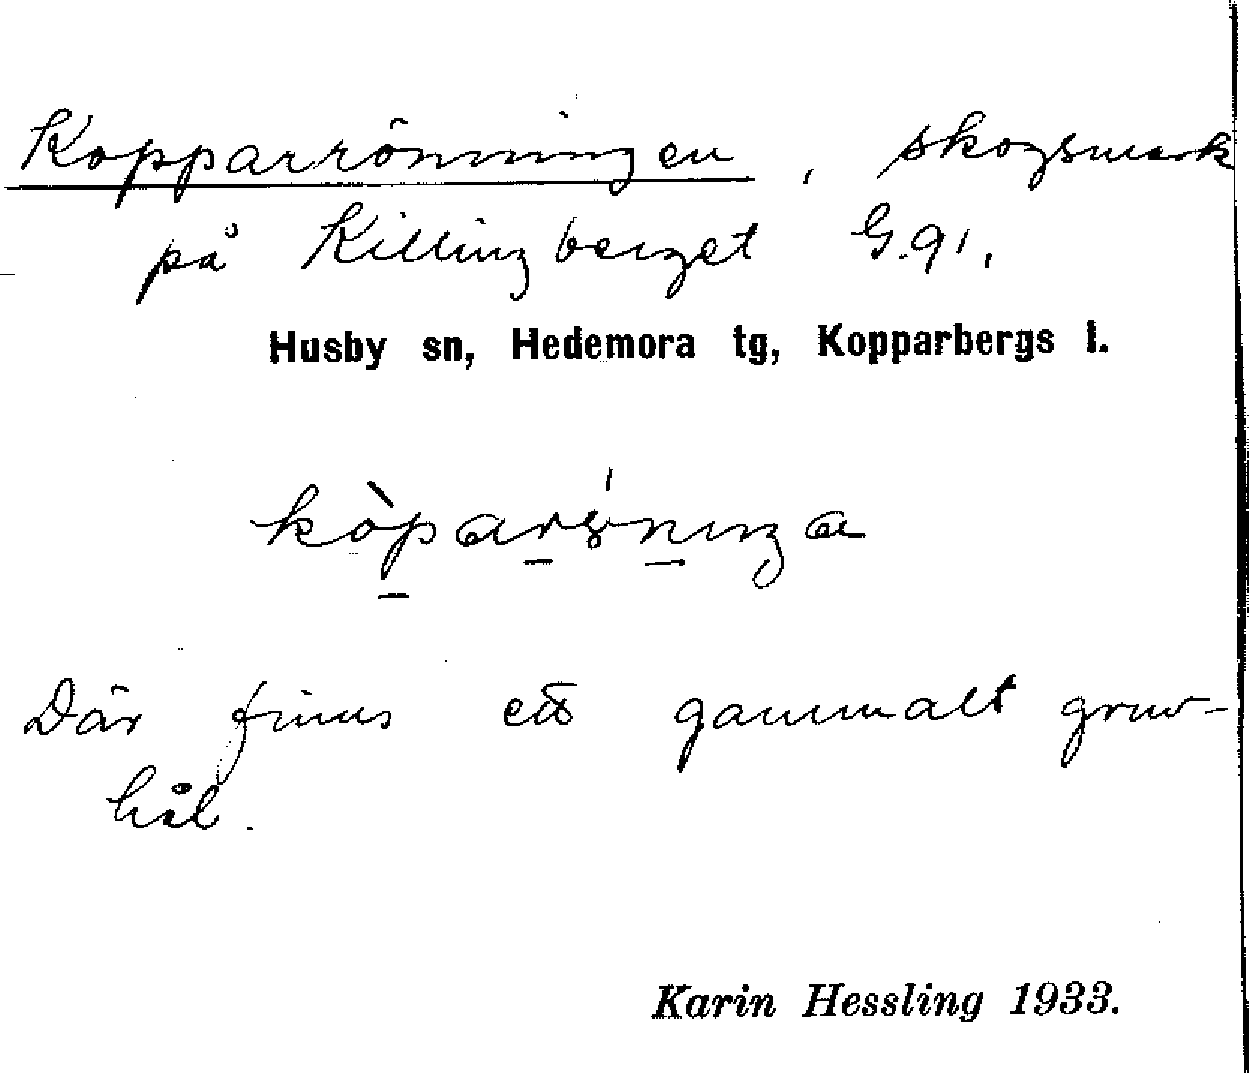 Kopparrönningen, skogsmark
på Killingberget G.91.
Husby sn, Hedemora tg, Kopparbergs l.
Där finns ett gammalt gruv-
hål.
Karin Hessling 1933.